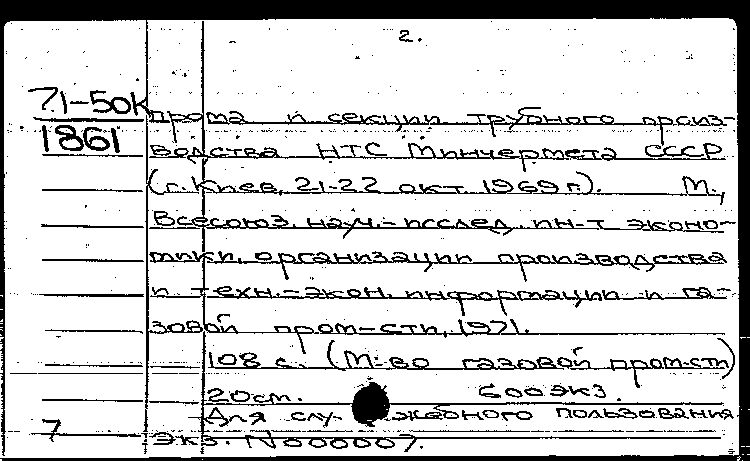 2.
71-50К
1861
прома и секции трубного произ-
водства НТС Минчермета СССР
(г. Киев, 21-22 окт. 1969 г). М.,
Всесоюз. науч.-исслед. ин-т эконо-
мики, организации производства
и техн.-экон. информации и га-
зовой пром-сти, 1971.
108 с. (М-во газовой пром-сти)
20см. 600 экз.
Для служебного пользования
7
Экз. №000007.